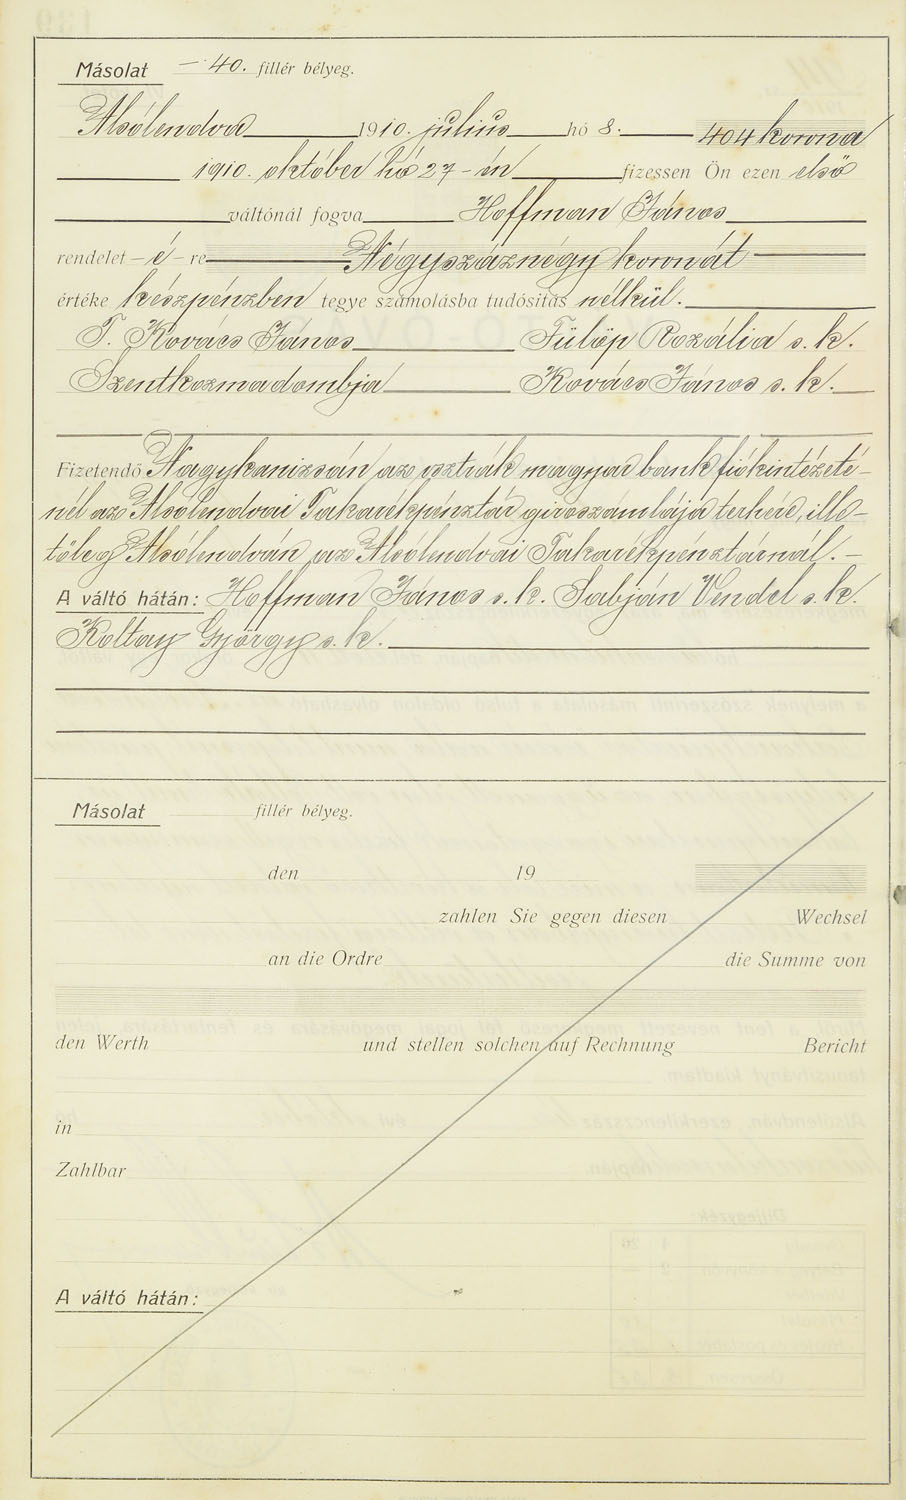 Másolat — 40. fillér bélyeg.
Alsólendva 1910. július hó 8. 404 korona
1910. október hó 27-én fizessen Ön ezen első
váltónál fogva Hoffman János
rendelet—é—re Négyszáznégy koronát
értéke készpénzben tegye számolásba tudósítás nélkül.
T. Kovács János Fülöp Rozália s. k.
Szentkozmadombja Kovács János s. k.
Fizetendő Nagykanizsán az osztrák magyar bank fiókintézeté-
nél az Alsólendvai Takarékpénztár giroszámlája terhére, ille-
tőleg Alsólendván az Alsólendvai Takarékpénztárnál. —
A váltó hátán: Hoffman János s. k. Sabján Vendel s. k.
Koltay György s. k.
Másolat fillér bélyeg.
den 19
zahlen Sie gegen diesen Wechsel
an die Ordre die Summe von
den Werth und stellen solchen auf Rechnung Bericht
in
Zahlbar
A váltó hátán: